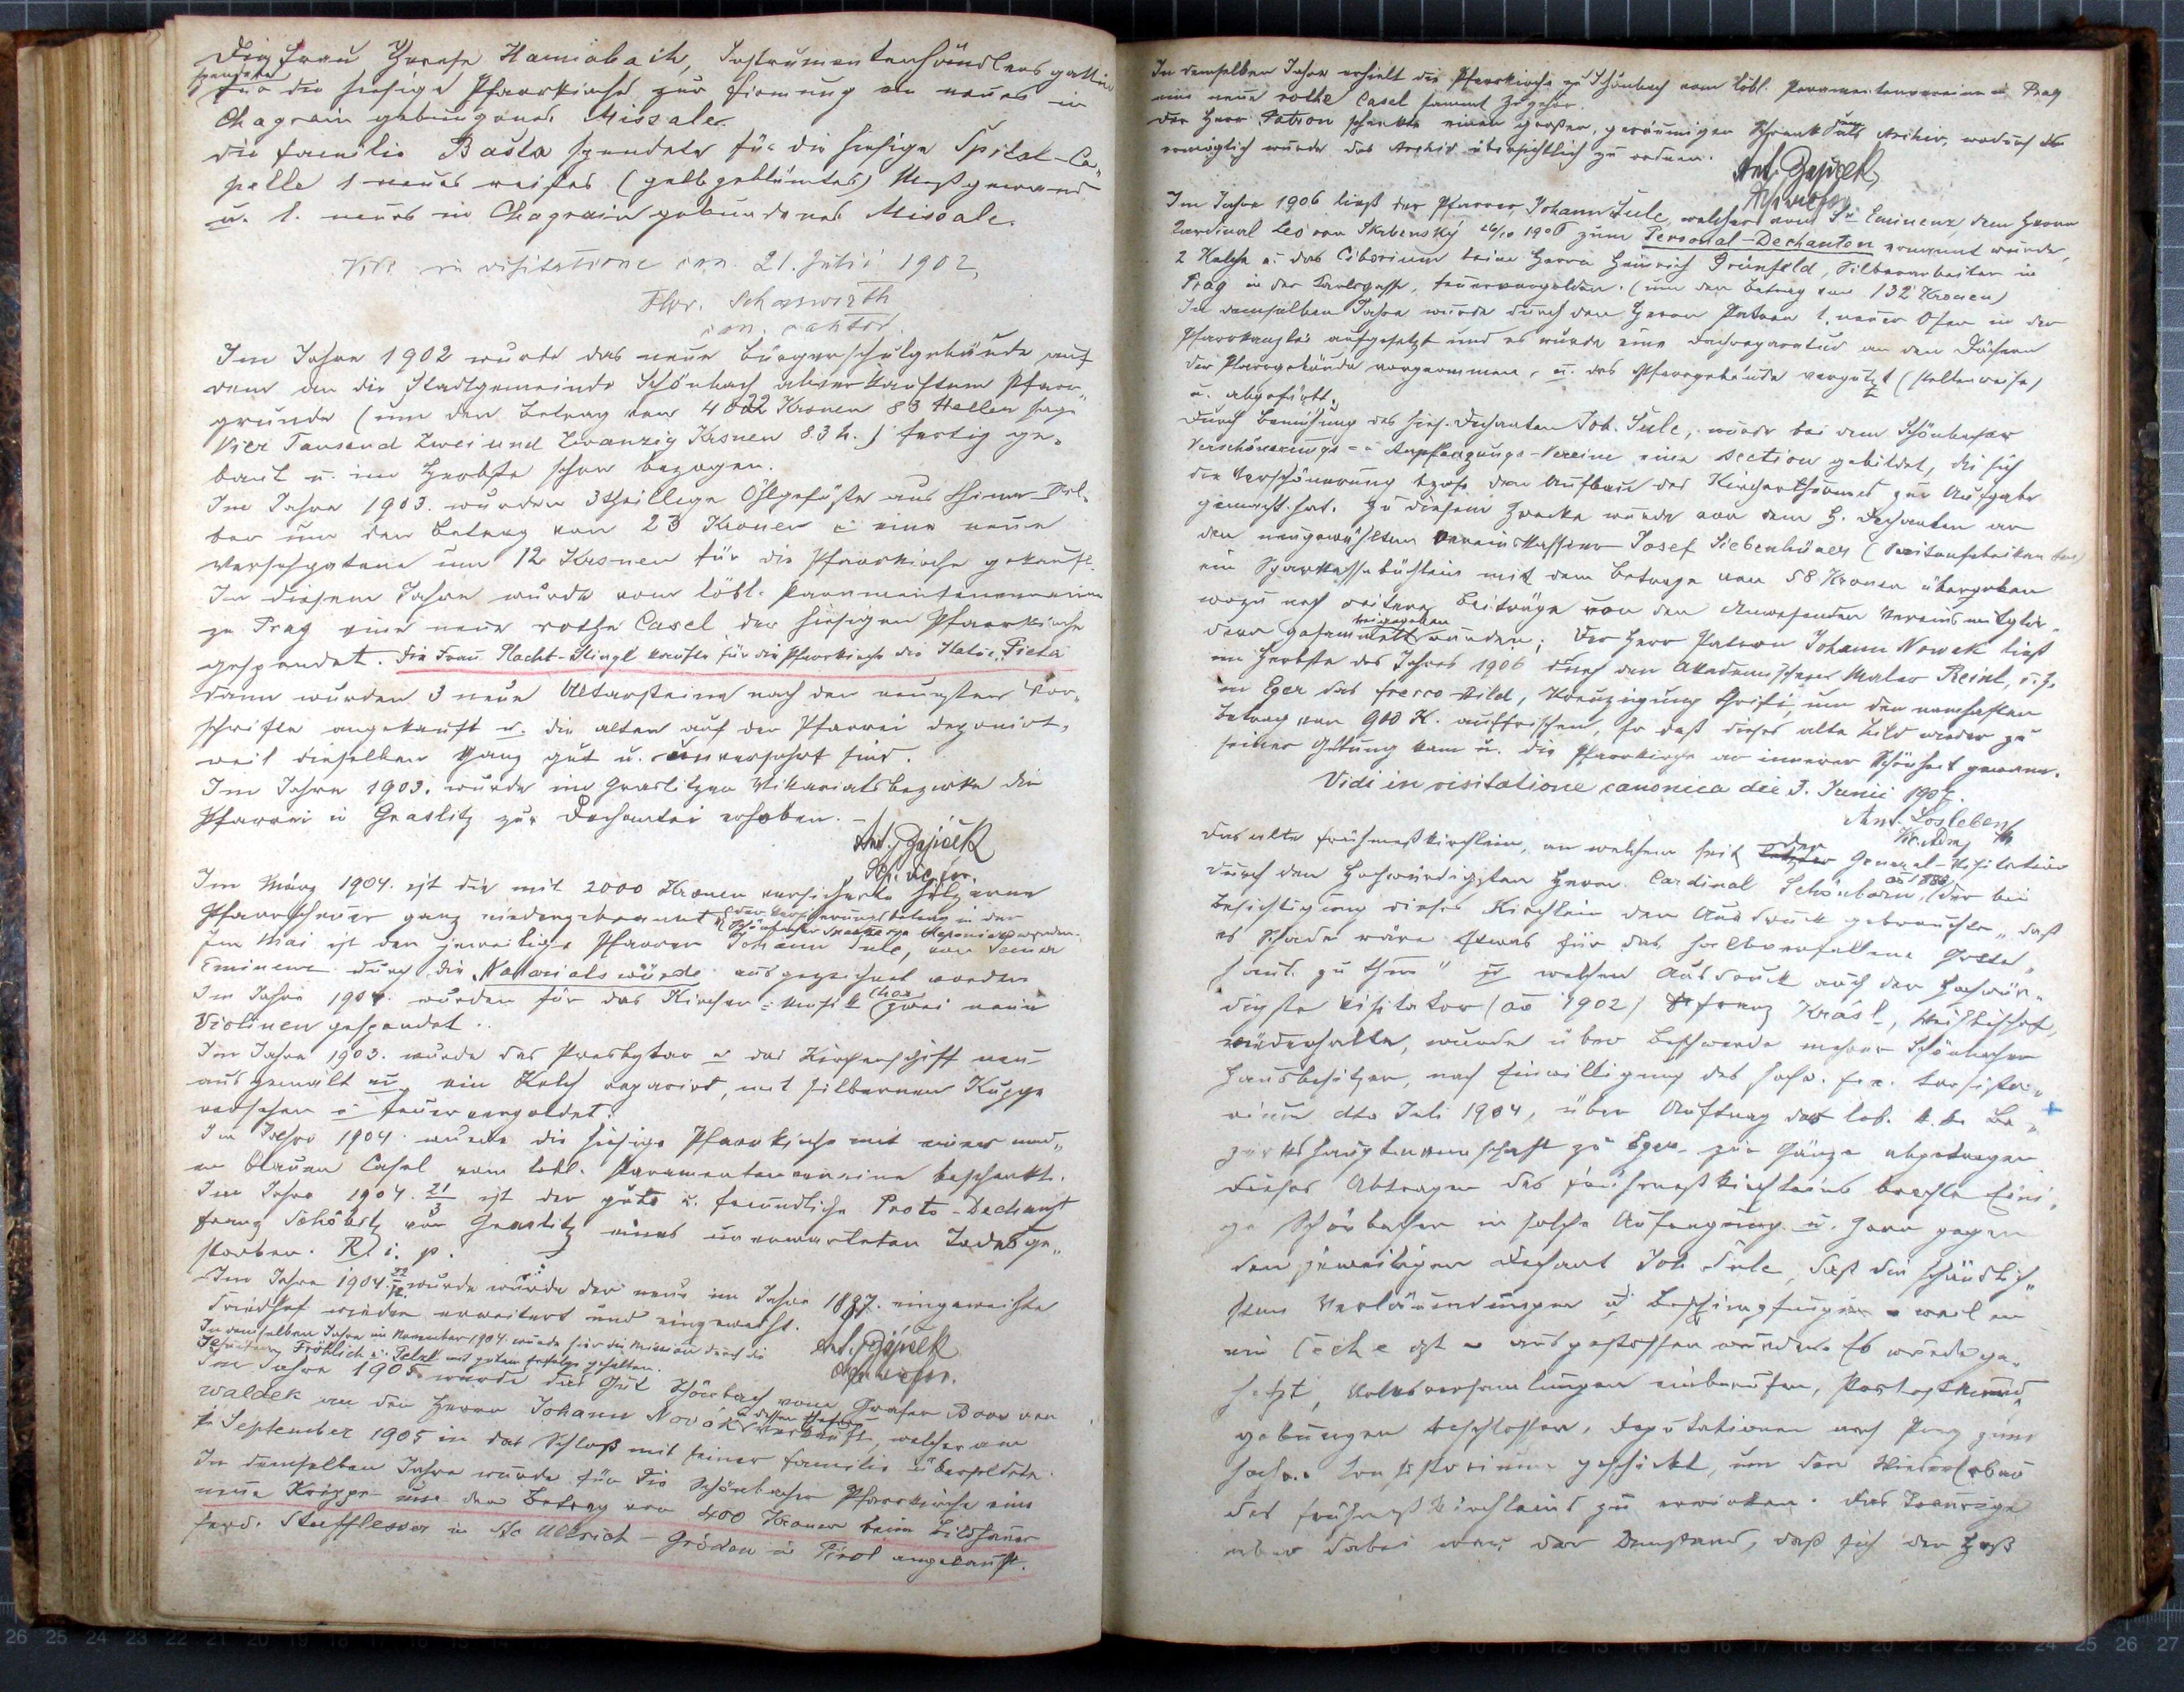 Die Frau Therese Hamabach, Instrumentenhändlersgattin
spendete
für die hiesige Pfarrkirche zur Firmung ein neues in
Chagrain gebundenes Missale.
die Familie Basta spendete für die hiesige Spital-Ca-
pelle 1 neues weißes (gelb geblümtes) Meßgewand
u. 1. neues in Chagrain gebundenes Missale.
Vidi in visitatione can. 21. Julii 1902,
Im Jahre 1902 wurde das neue Bürgerschulgebäude auf
dem an die Stadtgemeinde Schönbach abverkauftem Pfarr-
grunde (um den Betrag von 4022 Kronen 83 Heller sage
Vier Tausend Zwei und Zwanzig Kronen 83 h.) fertig ge-
baut u. im Herbste schon bezogen.
Im Jahre 1903. wurden 3theillige Öhlgefäße aus China-Sil-
ber um den Betrag von 23 Kronen u. eine neue
Versehpatene um 12 Kronen für die Pfarrkirche gekauft.
In diesem Jahre wurde vom löbl. Paramentenvereine
zu Prag eine neue rothe Casel der hiesigen Pfarrkirche
gespendet. Die Frau Placht-Klingl kaufte für die Pfarrkirche die Statue "Pieta
dann wurden 3 neue Altarsteine nach der neuesten Vor-
schrifte angekauft u. die alten auf der Pfarrei deponirt,
weil dieselben ganz gut u. unversehrt sind.
Im Jahre 1903. wurde im Graslitzer Vikariatsbezirke die
Pfarrei in Graslitz zur Dechantei erhoben. -
Ant. Zajíček
Im März 1904. ist die mit 2000 Kronen versicherte hölzerne
Pfarrscheuer ganz niedergebrannt
Im Mai ist der jeweilige Pfarrer Johann Sule, von Seiner
Eminenz durch die Notariatswürde ausgezeichnet worden
Im Jahre 1904. wurden für das Kirchen-Musik Chor zwei neue
Violinen gespendet.
Im Jahre 1903. wurde das Presbyter u. das Kirchenschiff neu
ausgemalt u. ein Kelch reparirt, mit silbernen Kuppe
versehen u. feuervergoldet.
Im Jahre 1904. wurde die hiesige Pfarrkirche mit einer neu-
en blauen Casel vom löbl. Paramentenvereine beschenkt.
Im Jahre 1904. 21/3 ist der gute u. freundliche Proto-Dechant
Franz Schöbitz von Graslitz eines unerwarteten Todes ge-
storben. R. i. p.
Im Jahre 1904. wurde wurde der neue im Jahre 1887. eingeweihte
Friedhof wieder erweitert und eingeweiht.
In demselben Jahre im November 1904. wurde hier die Mission durch die
Jesuiten Fröhlich u. Pelzl mit gutem Erfolge gehalten.
Ant. Zajíček
Im Jahre 1905. wurde das Gut Schönbach vom Grafen Boos von
Waldek an den Herrn Johann Novák verkauft, welcher am
September 1905 in das Schloß mit seiner Familie übersiedelte.
In demselben Jahre wurde für die Schönbacher Pfarrkirche eine
neue Krippe um den Betrag von 400 Kronen beim Bildhauer
Ferd. Stufflesser in St. Ulrich - Gröden in Tirol angekauft.
In demselben Jahre erhielt die Pfarrkirche zu Schönbach vom löbl. Paramentenvereine in Prag
eine neue rothe Casel sammt Zugehör.
Der Herr Patron schenkte einen großen, geräumigen Schrank fürs Archiv, wodurch es
ermöglich wurde das Archiv übersichtlich zu ordnen.
Ant. Zajíček
Im Jahre 1906 ließ der Pfarrer Johann Sule, welcher von Sr Eminenz dem Herrn
Kardinal Leo von Skrbensky 26/10 1906 zum Personal-Dechanten ernannt wurde,
2 Kelche u. das Ciborium beim Herrn Heinrich Grünfeld, Silberarbeiter in
Prag in der Karlsgasse, feuervergolden. (um den Betrag von 132 Kronen)
In demselben Jahre wurde durch den Herrn Patron 1. neuer Ofen in der
Pfarrkanzlei aufgesetzt und es wurde eine Dachreparatur an den Dächern
der Pfarrgebäude vorgenommen, u. das Pfarrgebäude verputzt (stellenweise)
u. abgefärbt.
Durch Bemühung des hies. Dechanten Joh. Sule, wurde bei dem Schönbacher
Verschönerungs- u. Anpflanzungs-Vereine eine Section gebildet, die sich
die Verschönerung bzw. den Aufbau des Kirchenthurmes zur Aufgabe
gemacht hat. Zu diesem Zwecke wurde von dem H. Dechanten an
den neugewählten Vereinskassierer Josef Siebenhüner (Saitenfabrikanten)
ein Sparkassebüchlein mit dem Betrage von 58 Kronen übergeben
wozu noch weitere Beiträge von den Anwesenden Vereinsmitglie-
dern gesammelt wurden; Der Herr Patron Johann Nowak ließ
im Herbste des Jahres 1906 durch den Akademischen Maler Reinl, d. Z.
in Eger das fresco-Bild, Kreuzigung Christi, um den namhaften
Betrag von 900 K. auffrischen, so daß dieses alte Bild wieder zu
seiner Geltung kam u. die Pfarrkirche an innerer Schönheit gewann.
Vidi in visitatione canonica die 3. Junii 1907.
Das alte Frühmeßkirchlein, an welchem seit der General-Visitation
durch den Hochwürdigsten Herrn Cardinal Schönborn, (der bei
Besichtigung dieses Kirchlein den Ausdruck gebrauchte „daß
es Schade wäre Etwas für das halbverfallene Gottes-
haus zu thun" u. welchen Ausdruck auch der Hochwür-
digste Visitator (ao 1902) Dr Franz Krásl, Weihbischof,
wiederholte, wurde über Beschwerde mehrer Schönbacher
Hausbesitzer, nach Einwilligung des hochw. f. e. Consisto-
rium dto Juli 1904, über Auftrag der löb. k. k. Be-
zirkshauptmannschaft zu Eger zur Gänze abgetragen
Dieses Abtragen des Frühmeßkirchleins brachte Eini-
ge Schönbacher in solche Aufregung u. Zorn gegen
den jeweiligen Dechant Joh Sule, daß die schändlich-
sten Verläumdungen u. Beschimpfungen - weil er
ein Čeche ist - ausgestossen wurden. Es wurde ge-
hetzt, Volksversammlungen einberufen, Protestkund-
gebungen beschlossen, Deputationen nach Prag zum
hochw. Consistorium geschickt, um den Wiederaufbau
des Frühmeßkirchleins zu erwirken. Das Traurige
aber dabei war der Umstand, daß sich der Haß